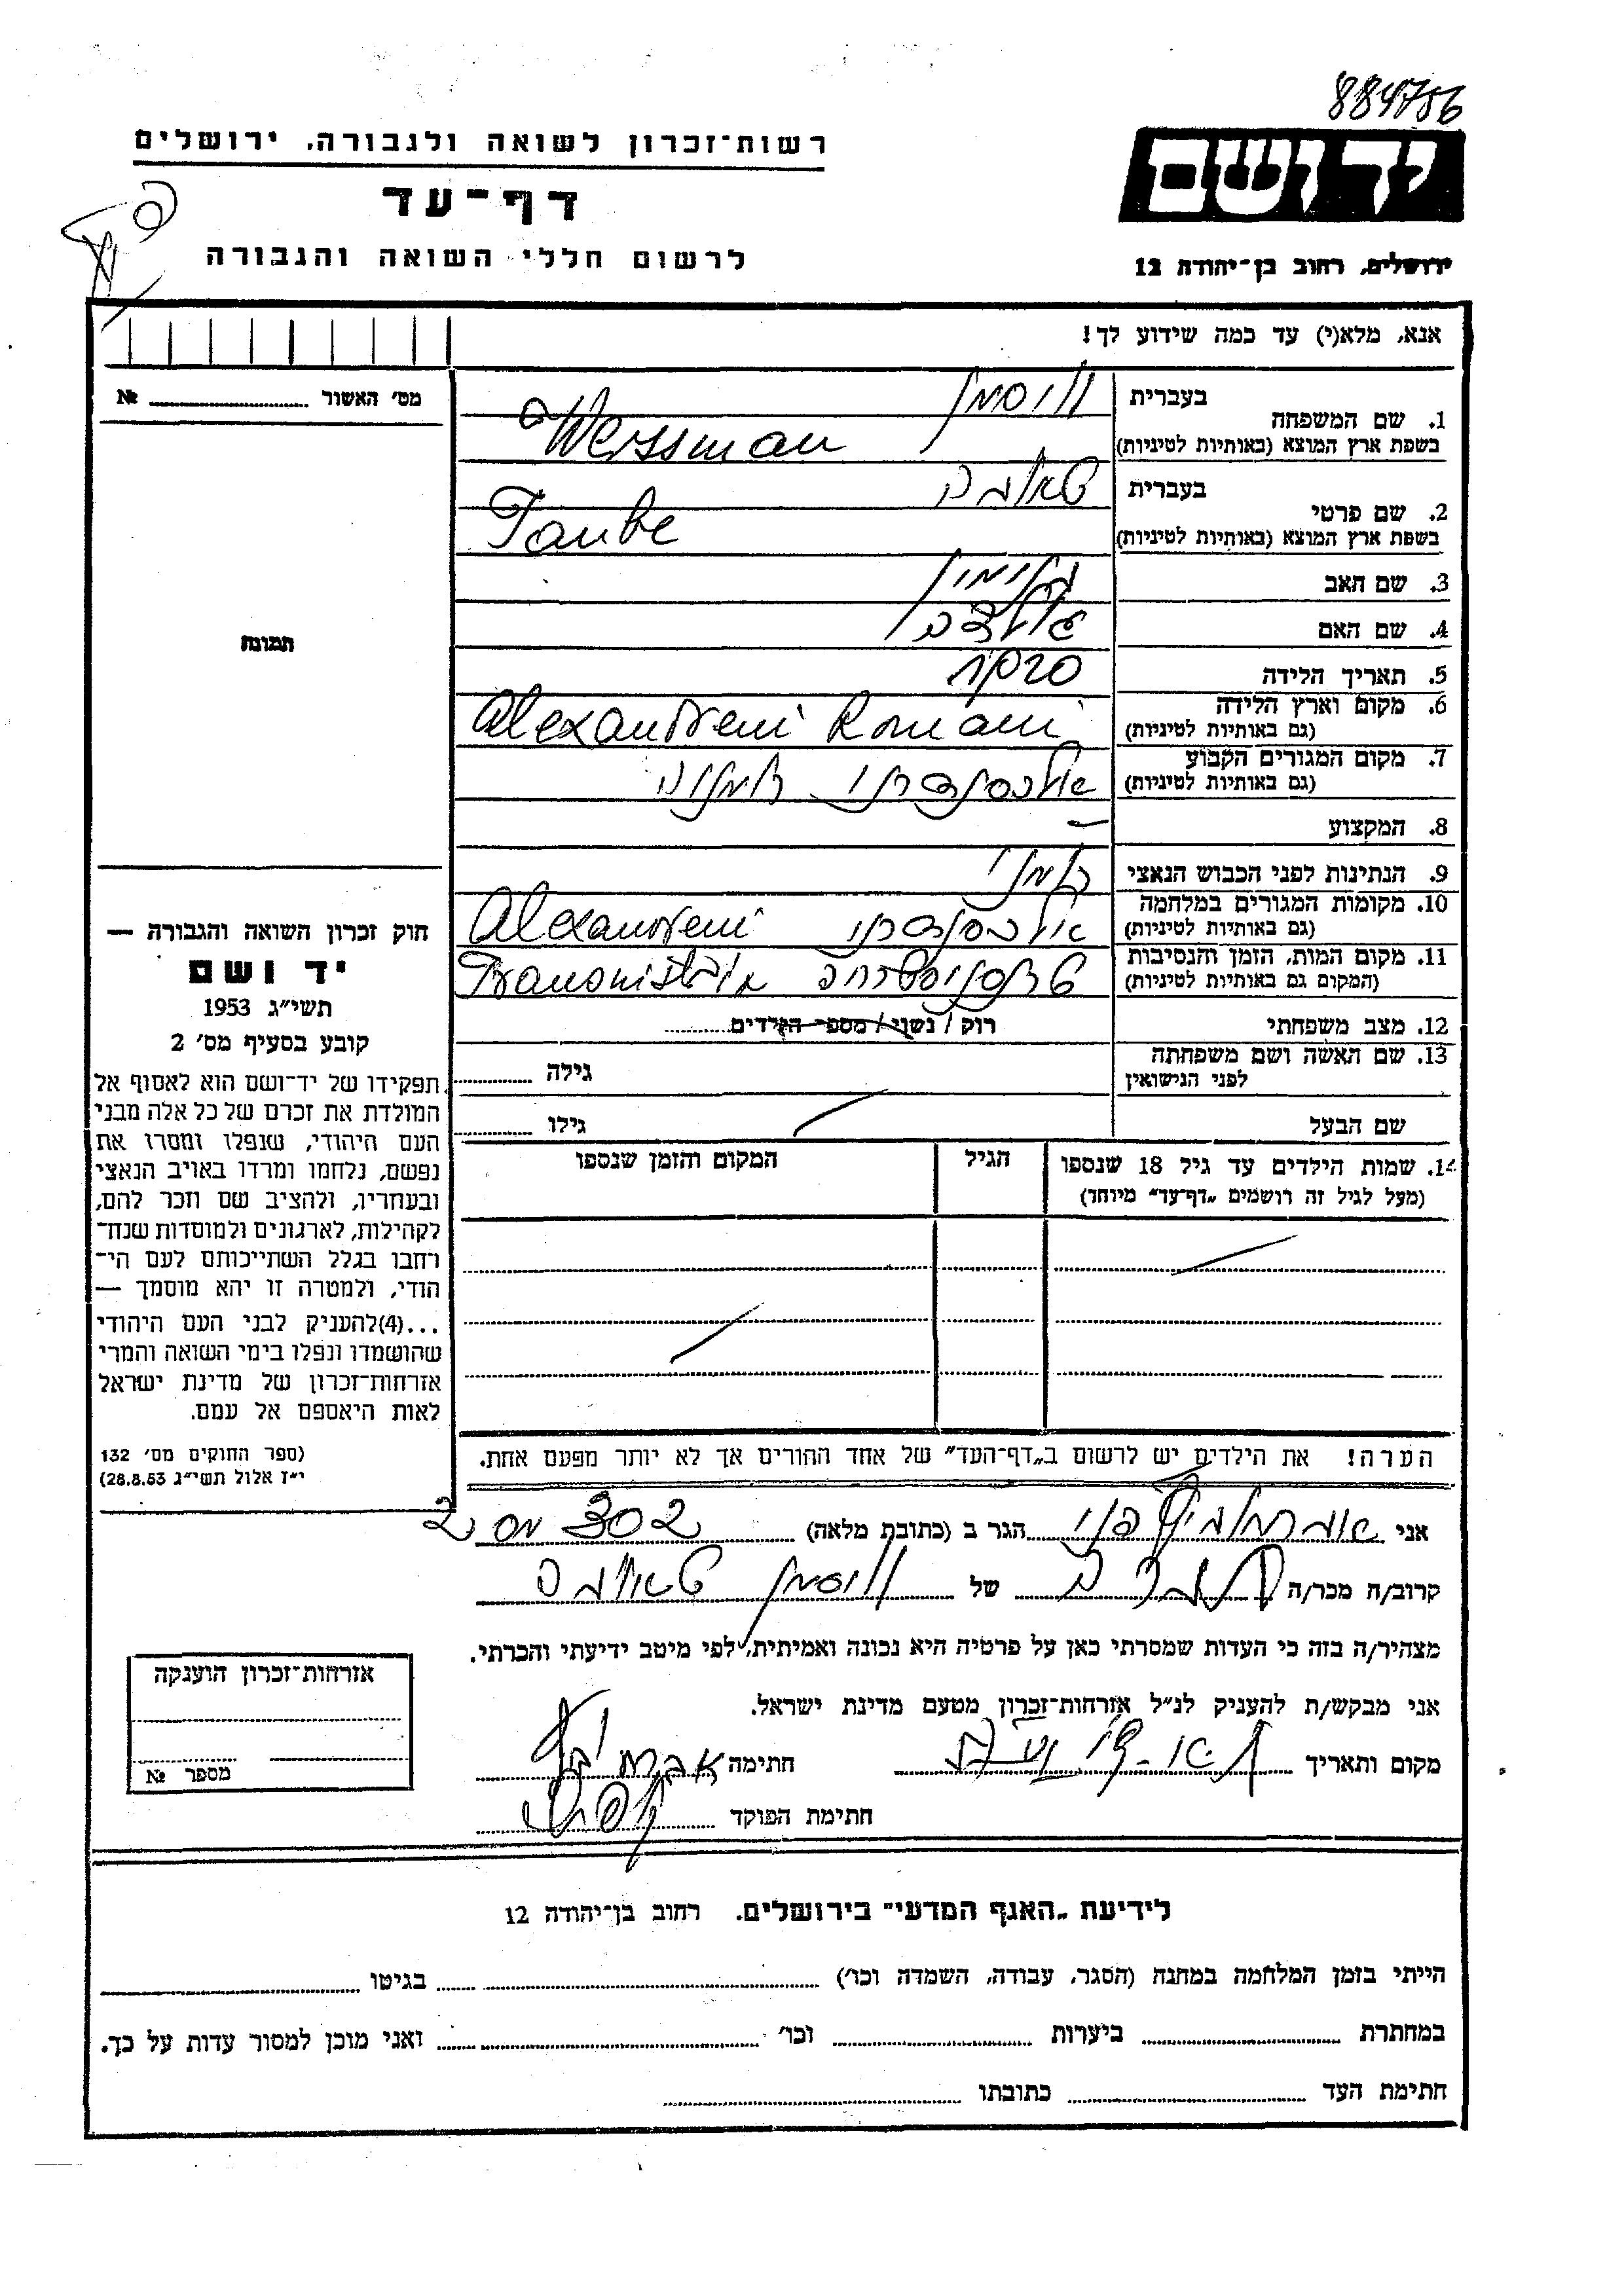 884756
רשות־זכרון לשואה ולגבורה, ירושלים
דף־עד
לרשום חללי השואה והגבורה
יד ושם
ירושלים, רחוב בן־יהודה 12
אנא, מלא(י) עד כמה שידוע לך!
מס׳ האשור № 
1. שם המשפחה
בעברית וויסמן
בשפת ארץ המוצא (באותיות לטיניות) Weissman
2. שם פרטי
בעברית טאובה
בשפת ארץ המוצא (באותיות לטיניות) Taube
3. שם האב בנימין
4. שם האם
5. תאריך הלידה
6. מקום וארץ הלידה
(גם באותיות לטיניות) Alexandreni Romani
7. מקום המגורים הקבוע
(גם באותיות לטיניות) אלכסנדרני רומניה
8. המקצוע –
9. הנתינות לפני הכבוש הנאצי רומני
10. מקומות המגורים במלחמה
(גם באותיות לטיניות) אלכסנדרני Alexandreni
11. מקום המות, הזמן והנסיבות
(המקום גם באותיות לטיניות) טרנסניסטריה Transnistria
12. מצב משפחתי רוק / נשוי / מספר הילדים
13. שם האשה ושם משפחתה
לפני הנישואין גילה
שם הבעל גילו
14. שמות הילדים עד גיל 18 שנספו
(מעל לגיל זה רושמים „דף־עד״ מיוחד)
הגיל
המקום והזמן שנספו
תמונה
חוק זכרון השואה והגבורה —
יד ושם
תשי״ג 1953
קובע בסעיף מס׳ 2
תפקידו של יד־ושם הוא לאסוף אל
המולדת את זכרם של כל אלה מבני
העם היהודי, שנפלו ומסרו את
נפשם, נלחמו ומרדו באויב הנאצי
ובעוזריו, ולהציב שם וזכר להם,
לקהילות, לארגונים ולמוסדות שנח־
רבו בגלל השתייכותם לעם הי־
הודי, ולמטרה זו יהא מוסמך —
...(4) להעניק לבני העם היהודי
שהושמדו ונפלו בימי השואה והמרי
אזרחות־זכרון של מדינת ישראל
לאות היאספם אל עמם.
(ספר החוקים מס׳ 132
י״ז אלול תשי״ג 28.8.53)
הערה! את הילדים יש לרשום ב„דף־העד״ של אחד ההורים אך לא יותר מפעם אחת.
אני אברמוביץ פני הגר ב (כתובת מלאה) 302
קרוב/ה מכר/ה של וויסמן טאובה
מצהיר/ה בזה כי העדות שמסרתי כאן על פרטיה היא נכונה ואמיתית, לפי מיטב ידיעתי והכרתי.
אני מבקש/ת להעניק לנ״ל אזרחות־זכרון מטעם מדינת ישראל.
מקום ותאריך חתימה
חתימת הפוקד
אזרחות־זכרון הוענקה
מספר №
לידיעת „האגף המדעי״ בירושלים. רחוב בן־יהודה 12
הייתי בזמן המלחמה במחנה (הסגר, עבודה, השמדה וכו׳) בגיטו
במחתרת ביערות וכו׳ ואני מוכן למסור עדות על כך.
חתימת העד כתובתו